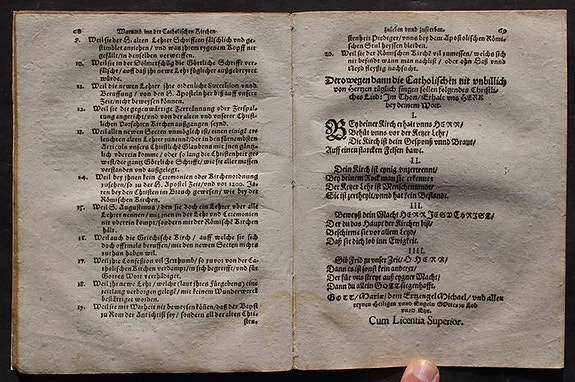 68 Warumb inn der Catholischen Kirchen
9. Weil sie der H. alten Lehrer Schrifften fälschlich und ge-
stimblet anziehen / und was jhrem eygenem Kopff nit
gefällt / in denselben verwerffen.
10. Weil sie in der Dolmetschung die Göttliche Schrifft ver-
fälscht / auff daß jhr newe Lehr füglicher außgebreytet
würde.
11. Weil die newen Lehrer / jhre ordenliche Succession unnd
Beruffung / von den H. Aposteln her biß auff unsere
Zeit / nicht beweysen können.
12. Weil sie die gegenwärtige Zertrennung oder Zerspal-
tung angericht / und von der alten und unserer Christli-
chen Vorsehern Kirchen außgangen seynd.
13. Weil allen newen Secten unmöglich ist / einen eynigt
rechten alten Lehrer zunennen / der in den fürnembsten
Articuln unsers Christliche Glaubens mit jnen gäntz-
lich vberein komme / oder so lang die Christenheit ge-
west / die gantz Göttliche Schrifft / wie sie alle müssen
verstanden und außgelegt.
14. Weil bey jhnen kein Ceremonien oder Kirchenordnung
zusehen / so zu der H. Apostel Zeit / und vor 1200. Ja-
ren bey den Christen im Brauch gewesen / wie bey der
Römischen Kirchen.
15. Weil S. Augustinus / den sie doch ein Lehrer vber alle
Lehrer nennen / mit jnen in der Lehr und Ceremonien
nit vberein kompt / sondern mit der Römischen Kirch
hält.
16. Weil auch die Griechische Kirch / auff welche sie sich
doch offtmals beruffen / mit den newen Secten nichts
zuthun haben wil.
17. Weil jhre Confession vil Jrrthumb / so zuvor von der Ca-
tholischen Kirchen verdampt / in sich begreifft / und für
Gottes Wort verthädiget.
18. Weil jhr newe Lehr / welche (laut jhres Fürgebens) eine
zeitlang verborgen gelegt / mit keinem Wunderwerck
bestättiget worden.
19. Weil sie mit Warheit nit beweysen können / daß der Bapst
zu Rom der Antichrist sey / sondern all der alten Chri-
sten-
zuleben unnd zusterben. 69
stenheit Prediger / unns bey dem Apostolischen Römi-
schen Stul heyssen bleiben.
20. Weil sie der Römischen Kirchē vil zumessen / welchs sich
nit befindt wann man nachlißt / oder ohn Haß unnd
Neyd fleyssig nachsucht.
Derowegen dann die Catholischen nit unbillich
von Hertzen täglich singen sollen folgendes Christli-
ches Lied: Im Thon / Erhalt uns HERR
bey deinem Wort.
I.
BEy deiner Kirch erhalt unns HERR /
Behüt unns vor der Ketzer Lehr /
Die Kirch ist dein Gespons unnd Braut /
Auff einen starcken Felsen bawt.
II.
Dein Kirch ist eynig unzertrennt /
Bey deinem Rock man sie erkennet
Der Ketzer Lehr ist Menschenthandt /
Sie ist zertheylt / unnd hat kein Bestandt.
III.
Beweyß dein Macht HERR JESU CHRIST /
Der du das Haupt der Kirchen bist /
Beschirme sie vor allem Leyd /
Daß sie dich lob inn Ewigkeit.
IIII.
Gib Frid zu unser Zeit / O HERR /
Dann es ist sonst kein anderer /
Der für uns streyt auß eygner Macht /
Dann du allein GOTT sieghafft.
GOTT / Marie / dem Ertzengel Michael / und allen
reynen Heiligen unnd Engeln GOttes zu Lob
unnd Ehr.
Cum Licentia Superior.